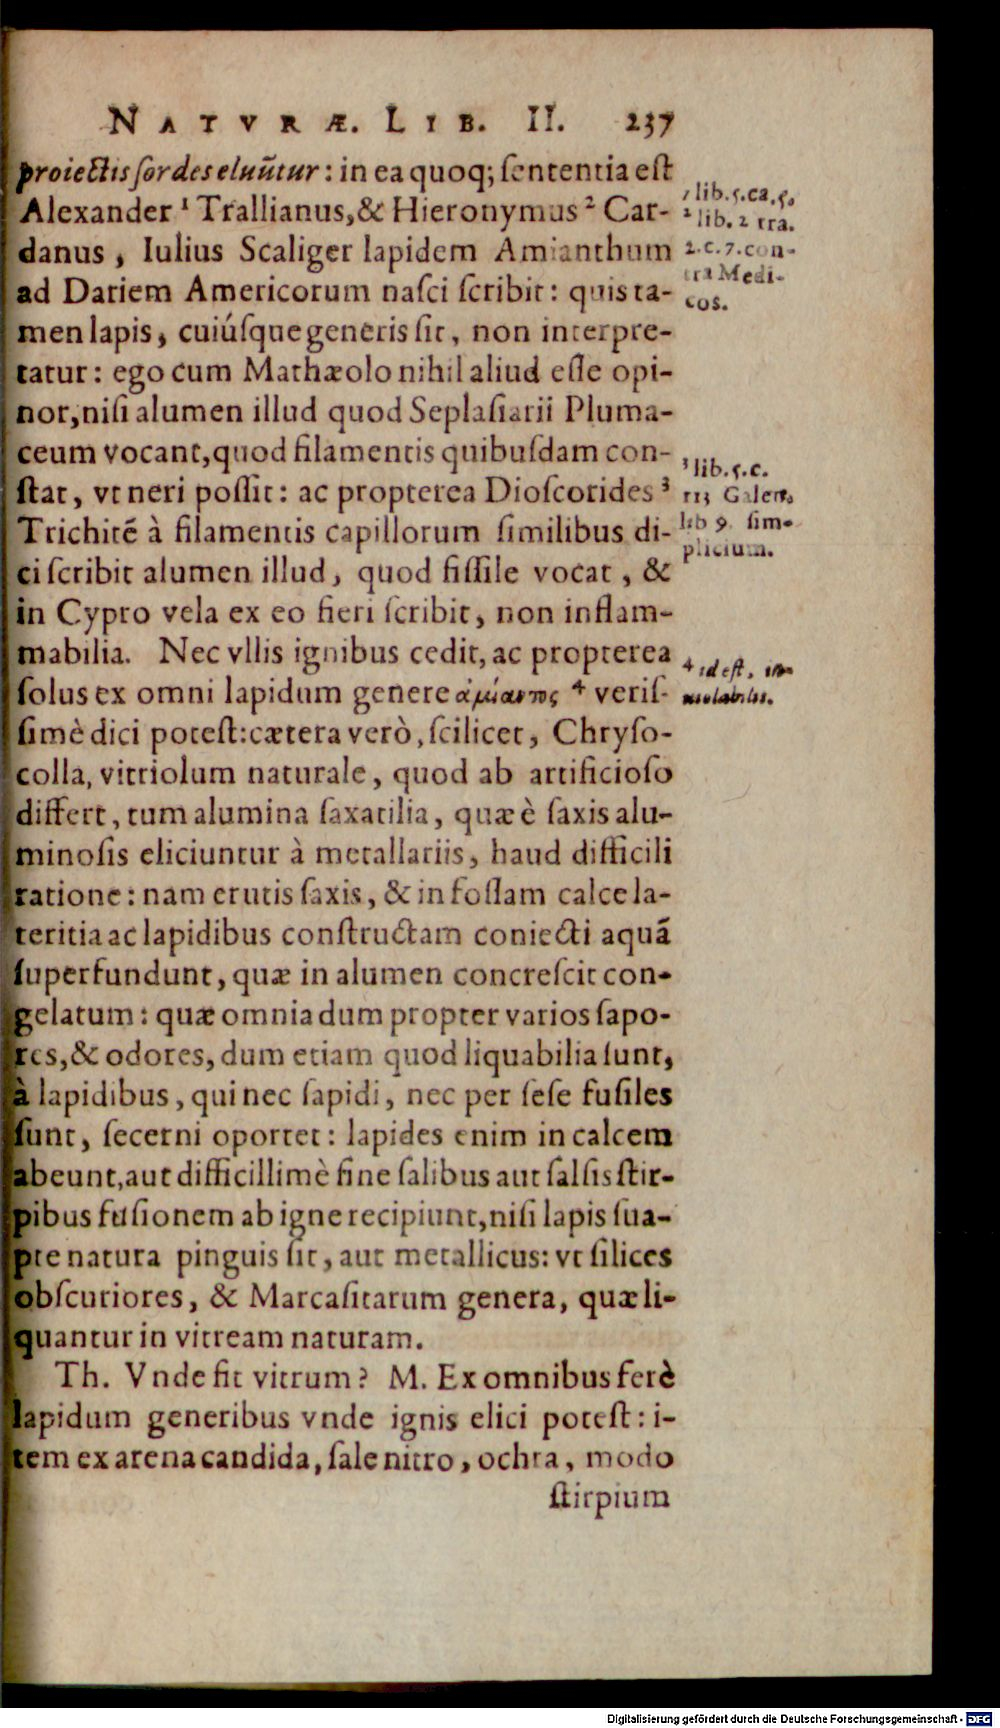 NATVRÆ. LIB. II. 237
proiectis sordes eluũtur: in ea quoq; sententia est
Alexander ¹ Trallianus, & Hieronymus ² Car-
danus, Iulius Scaliger lapidem Amianthum
ad Dariem Americorum nasci scribit: quis ta-
men lapis, cuiúsque generis sit, non interpre-
tatur: ego cum Mathæolo nihil aliud esse opi-
nor, nisi alumen illud quod Seplasiarii Pluma-
ceum vocant, quod filamentis quibusdam con-
stat, vt neri possit: ac propterea Dioscorides ³
Trichitẽ à filamentis capillorum similibus di-
ci scribit alumen illud, quod fissile vocat, &
in Cypro vela ex eo fieri scribit, non inflam-
mabilia. Nec vllis ignibus cedit, ac propterea
solus ex omni lapidum genere ἀμίαντος ⁴ veris-
simè dici potest: cætera verò, scilicet, Chryso-
colla, vitriolum naturale, quod ab artificioso
differt, tum alumina saxatilia, quæ è saxis alu-
minosis eliciuntur à metallariis, haud difficili
ratione: nam erutis saxis, & in fossam calce la-
teritia ac lapidibus constructam coniecti aquã
superfundunt, quæ in alumen concrescit con-
gelatum: quæ omnia dum propter varios sapo-
res, & odores, dum etiam quod liquabilia sunt,
à lapidibus, qui nec sapidi, nec per sese fusiles
sunt, secerni oportet: lapides enim in calcem
abeunt, aut difficillimè sine salibus aut salsis stir-
pibus fusionem ab igne recipiunt, nisi lapis sua-
pte natura pinguis sit, aut metallicus: vt silices
obscuriores, & Marcasitarum genera, quæ li-
quantur in vitream naturam.
Th. Vnde fit vitrum? M. Ex omnibus ferè
lapidum generibus vnde ignis elici potest: i-
tem ex arena candida, sale nitro, ochra, modo
stirpium
¹ lib. 5. ca. 5.
² lib. 2 tra.
2. c. 7. con-
tra Medi-
cos.
³ lib. 5. c.
113 Galen.
lib 9. sim-
plicium.
⁴ id est, in-
uiolabilis.
Digitalisierung gefördert durch die Deutsche Forschungsgemeinschaft - DFG